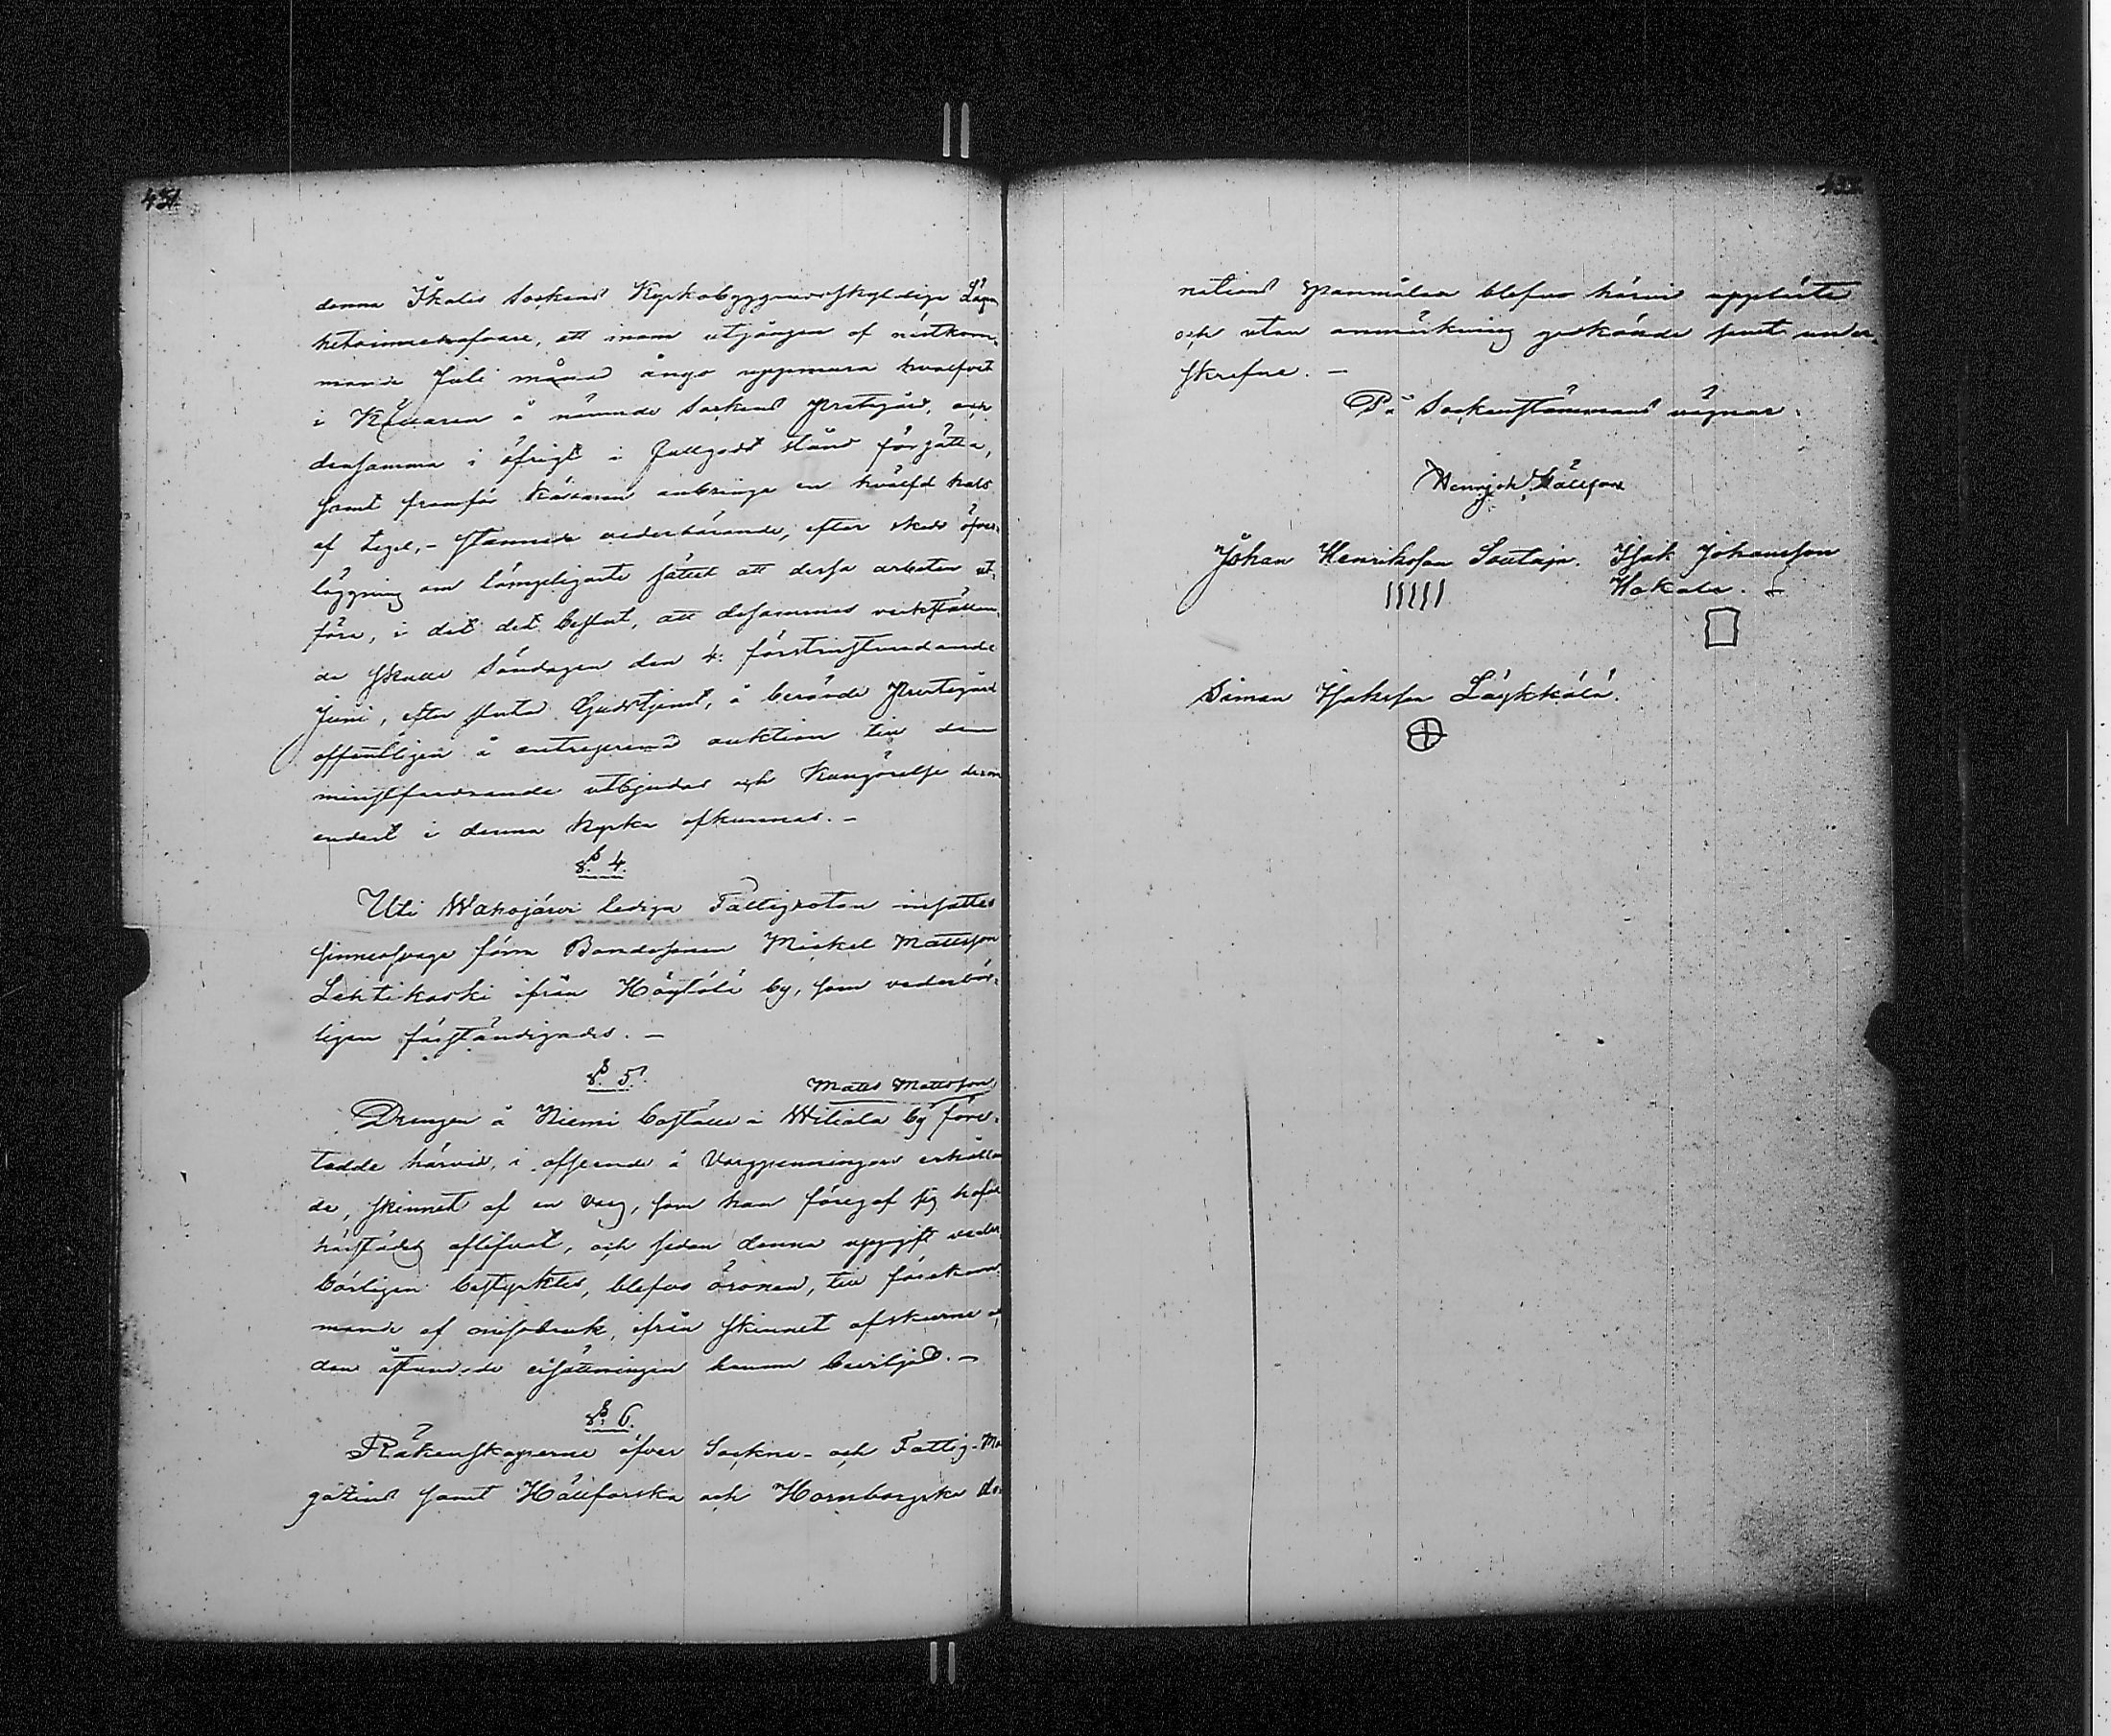 451.
denna Ikalis Sockens Kyrkobyggnadsskyldige Lägen,
hetsinnehafvare, att inom utgången af nästkom,
mande Juli månad ånyo uppmura hvalfvet
i Källaren å nämnde Sockens Prestgård, och
densamma i öfrigt i fullgodt stånd försätta,
samt framför Källaren anbringa en hvälfd hals
af tegel, - stannade vederbörande, efter skedd öfver,
läggning om lämpligaste sättet att dessa arbeten ut,
föra, i det det beslut, att desammas verkställan,
de skulle Söndagen den 4: förstinstundande
Juni, efter slutad Gudstjenst, å berörde Prestgård
offentligen å entreprenad auktion till den
minstfordrande utbjudas och Kungörelse derom
endast i denna kyrka afkunnas. -
§. 4.
Uti Wahojärvi lediga Fattigroten insattes
sinnessvage förra Bondesonen Mickel Mattsson
Lehtikoski ifrån Höytölä by, som vederbör,
ligen förständigades. -
§. 5.
Matts Mattsson
Drengen å Niemi Boställe i Wiliala by före,
tedde härvid, i afseende å Vargpenningars erhållan
de, skinnet af en varg, som han föregaf sig hafva
härstädes aflifvat, och sedan denna uppgift veder
börligen bestyrktes, blefvo öronen, till förekom,
mande af missbruk, ifrån skinnet afskurne och
den åstundade ersättningen honom beviljad. -
§. 6.
Räkenskaperne öfver Sockne- och Fattig-Ma
gazins samt Hällforska och Hornborgska do
452.
nations spanmålen blefvo härvid uppläste
och utan anmärkning godkände samt under,
skrefne. -
På Sockenstämmans vägnar:
Henrick Hällfors
Johan Henriksson Soutajn. Isak Johansson
Hakala.
Simon Isaksson Läykkälä.